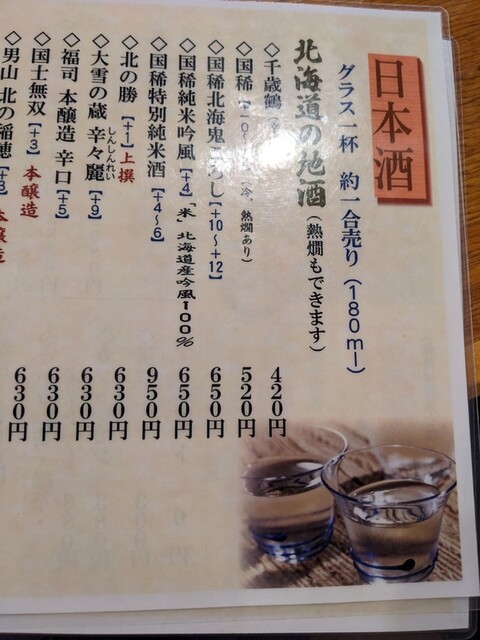 日本酒
グラス一杯 約一合売り(180ml)
北海道の地酒(熱燗もできます)
◇千歳鶴 420円
◇国稀 (冷、熱燗あり) 520円
◇国稀北海鬼ころし[+10~+12] 650円
◇国稀純米吟風[+4]「米」北海道産吟風100% 650円
◇国稀特別純米酒[+4~6] 950円
◇北の勝[+1]上撰 630円
◇大雪の蔵 辛々麗[+9] 630円
しんしんれい
◇福司 本醸造 辛口[+5] 630円
◇国士無双[+3]本醸造 630円
◇男山 北の稲穂[+3]本醸造 630円